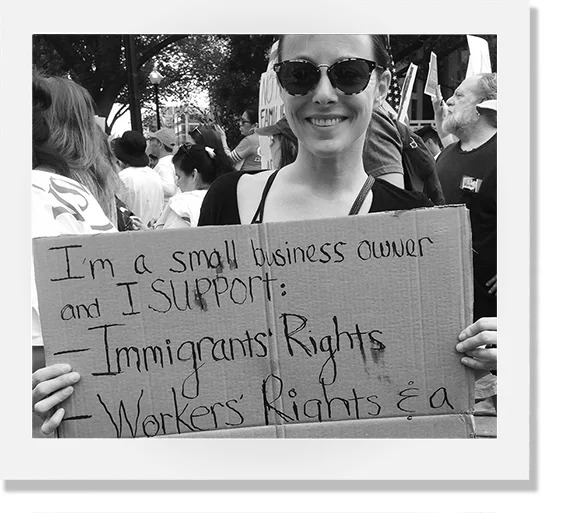 I'm a small business owner
and I SUPPORT:
- Immigrants' Rights
- Workers' Rights & a